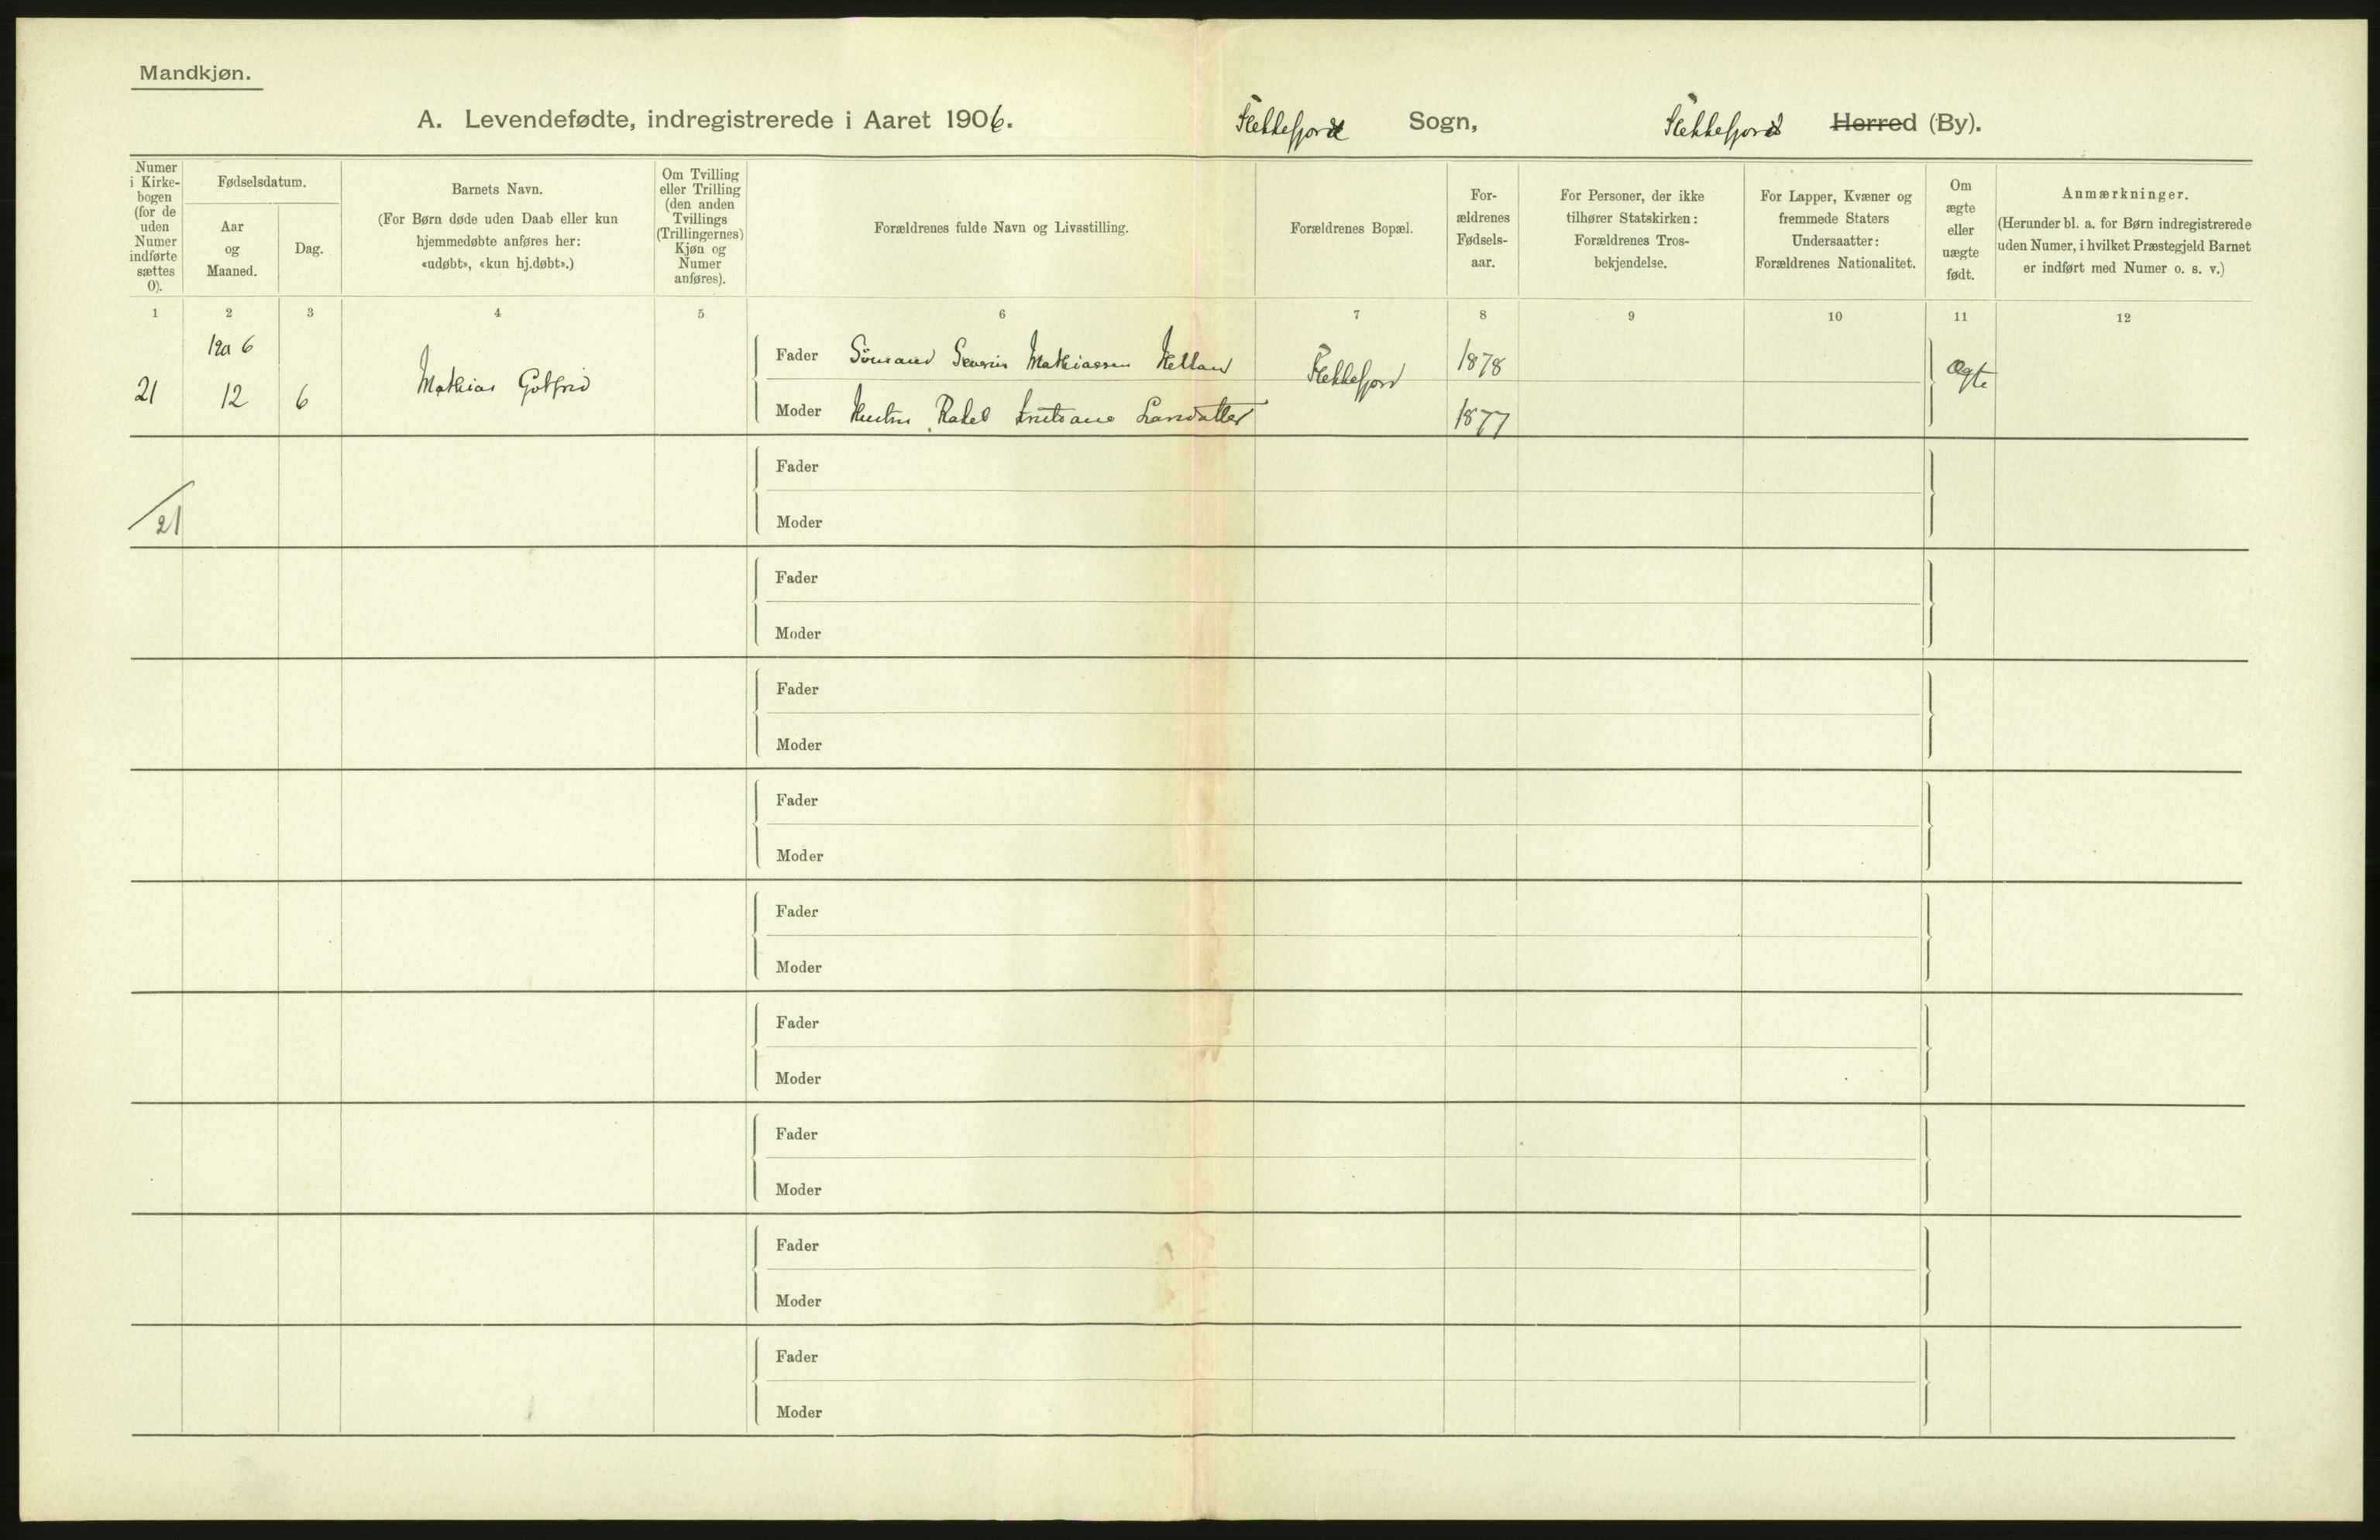 Mandkjøn.
A. Levendefødte, indregistrerede i Aaret 1906. Flekkefjord Sogn, Flekkefjord Herred (By).
Numer i Kirke-bogen (for de uden Numer indførte sættes 0).
Fødselsdatum.
Aar og Maaned.
Dag.
Barnets Navn.
(For Børn døde uden Daab eller kun
hjemmedøbte anføres her:
«udøbt», «kun hj.døbt».)
Om Tvilling
eller Trilling
(den anden
Tvillings
(Trillingernes)
Kjøn og
Numer
anføres).
Forældrenes fulde Navn og Livsstilling.
Forældrenes Bopæl.
For-
ældrenes
Fødsels-
aar.
For Personer, der ikke
tilhører Statskirken:
Forældrenes Tros-
bekjendelse.
For Lapper, Kvæner og
fremmede Staters
Undersaatter:
Forældrenes Nationalitet.
Om
ægte
eller
uægte
født.
Anmærkninger.
(Herunder bl. a. for Børn indregistrerede
uden Numer, i hvilket Præstegjeld Barnet
er indført med Numer o. s. v.)
1 2 3 4 5 6 7 8 9 10 11 12
21 12 6 Mathias Gotfrid
Fader Severin Mathiassen Helland Flekkefjord 1878 Ægte
Moder Hustru Rakel Larsdatter 1877
21
Fader
Moder
Fader
Moder
Fader
Moder
Fader
Moder
Fader
Moder
Fader
Moder
Fader
Moder
Fader
Moder
Fader
Moder